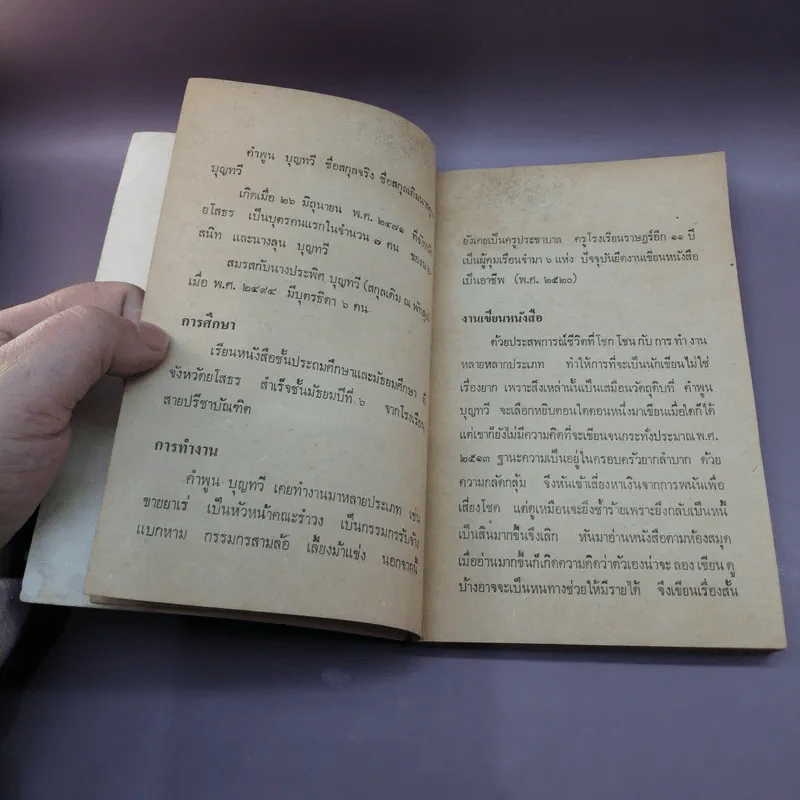 คำพูน บุญทวี ชื่อสกุลจริง ชื่อสกุลเดิม
บุญทวี
เกิดเมื่อ ๒๖ มิถุนายน พ.ศ. ๒๔๗๑
ยโสธร เป็นบุตรคนแรกในจำนวน ๗ คน ของ
สนิท และนางลุน บุญทวี
สมรสกับนางประพิศ บุญทวี (สกุลเดิม ณ
เมื่อ พ.ศ. ๒๔๙๔ มีบุตรธิดา ๖ คน
การศึกษา
เรียนหนังสือชั้นประถมศึกษาและมัธยมศึกษา ที่
จังหวัดยโสธร สำเร็จชั้นมัธยมปีที่ ๖ จากโรงเรียน
สายปรีชาบัณฑิต
การทำงาน
คำพูน บุญทวี เคยทำงานมาหลายประเภท เช่น
ขายยาเร่ เป็นหัวหน้าคณะรำวง เป็นกรรมกรรับจ้าง
แบกหาม กรรมกรสามล้อ เลี้ยงม้าแข่ง นอกจากนี้
ยังเคยเป็นครูประชาบาล ครูโรงเรียนราษฎร์อีก ๑๑ ปี
เป็นผู้คุมเรือนจำมา ๖ แห่ง ปัจจุบันยึดงานเขียนหนังสือ
เป็นอาชีพ (พ.ศ. ๒๕๒๐)
งานเขียนหนังสือ
ด้วยประสพการณ์ชีวิตที่โชกโชนกับการทำงาน
หลายหลากประเภท ทำให้การที่จะเป็นนักเขียนไม่ใช่
เรื่องยาก เพราะสิ่งเหล่านั้นเป็นเสมือนวัตถุดิบที่ คำพูน
บุญทวี จะเลือกหยิบตอนใดตอนหนึ่งมาเขียนเมื่อใดก็ได้
แต่เขาก็ยังไม่มีความคิดที่จะเขียนจนกระทั่งประมาณ พ.ศ.
๒๕๑๓ ฐานะความเป็นอยู่ในครอบครัวยากลำบาก ด้วย
ความกลัดกลุ้ม จึงหันเข้าเสี่ยงหาเงินจากการพนันเพื่อ
เสี่ยงโชค แต่ดูเหมือนจะยิ่งซ้ำร้ายเพราะยิ่งกลับเป็นหนี้
เป็นสินมากขึ้นจึงเลิก หันมาอ่านหนังสือตามห้องสมุด
เมื่ออ่านมากขึ้นก็เกิดความคิดว่าตัวเองน่าจะ ลอง เขียน ดู
บ้างอาจจะเป็นหนทางช่วยให้มีรายได้ จึงเขียนเรื่องสั้น